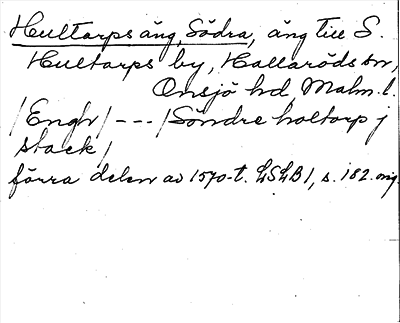 Hultarps äng, Södra, äng till S.
Hultarps by, Hallaröds sn,
Onsjö hd, Malm. l.
/Engh/ --- /Söndre holtorp j
stack/
förra delen av 1570-t. LSLB 1, s. 182. orig.